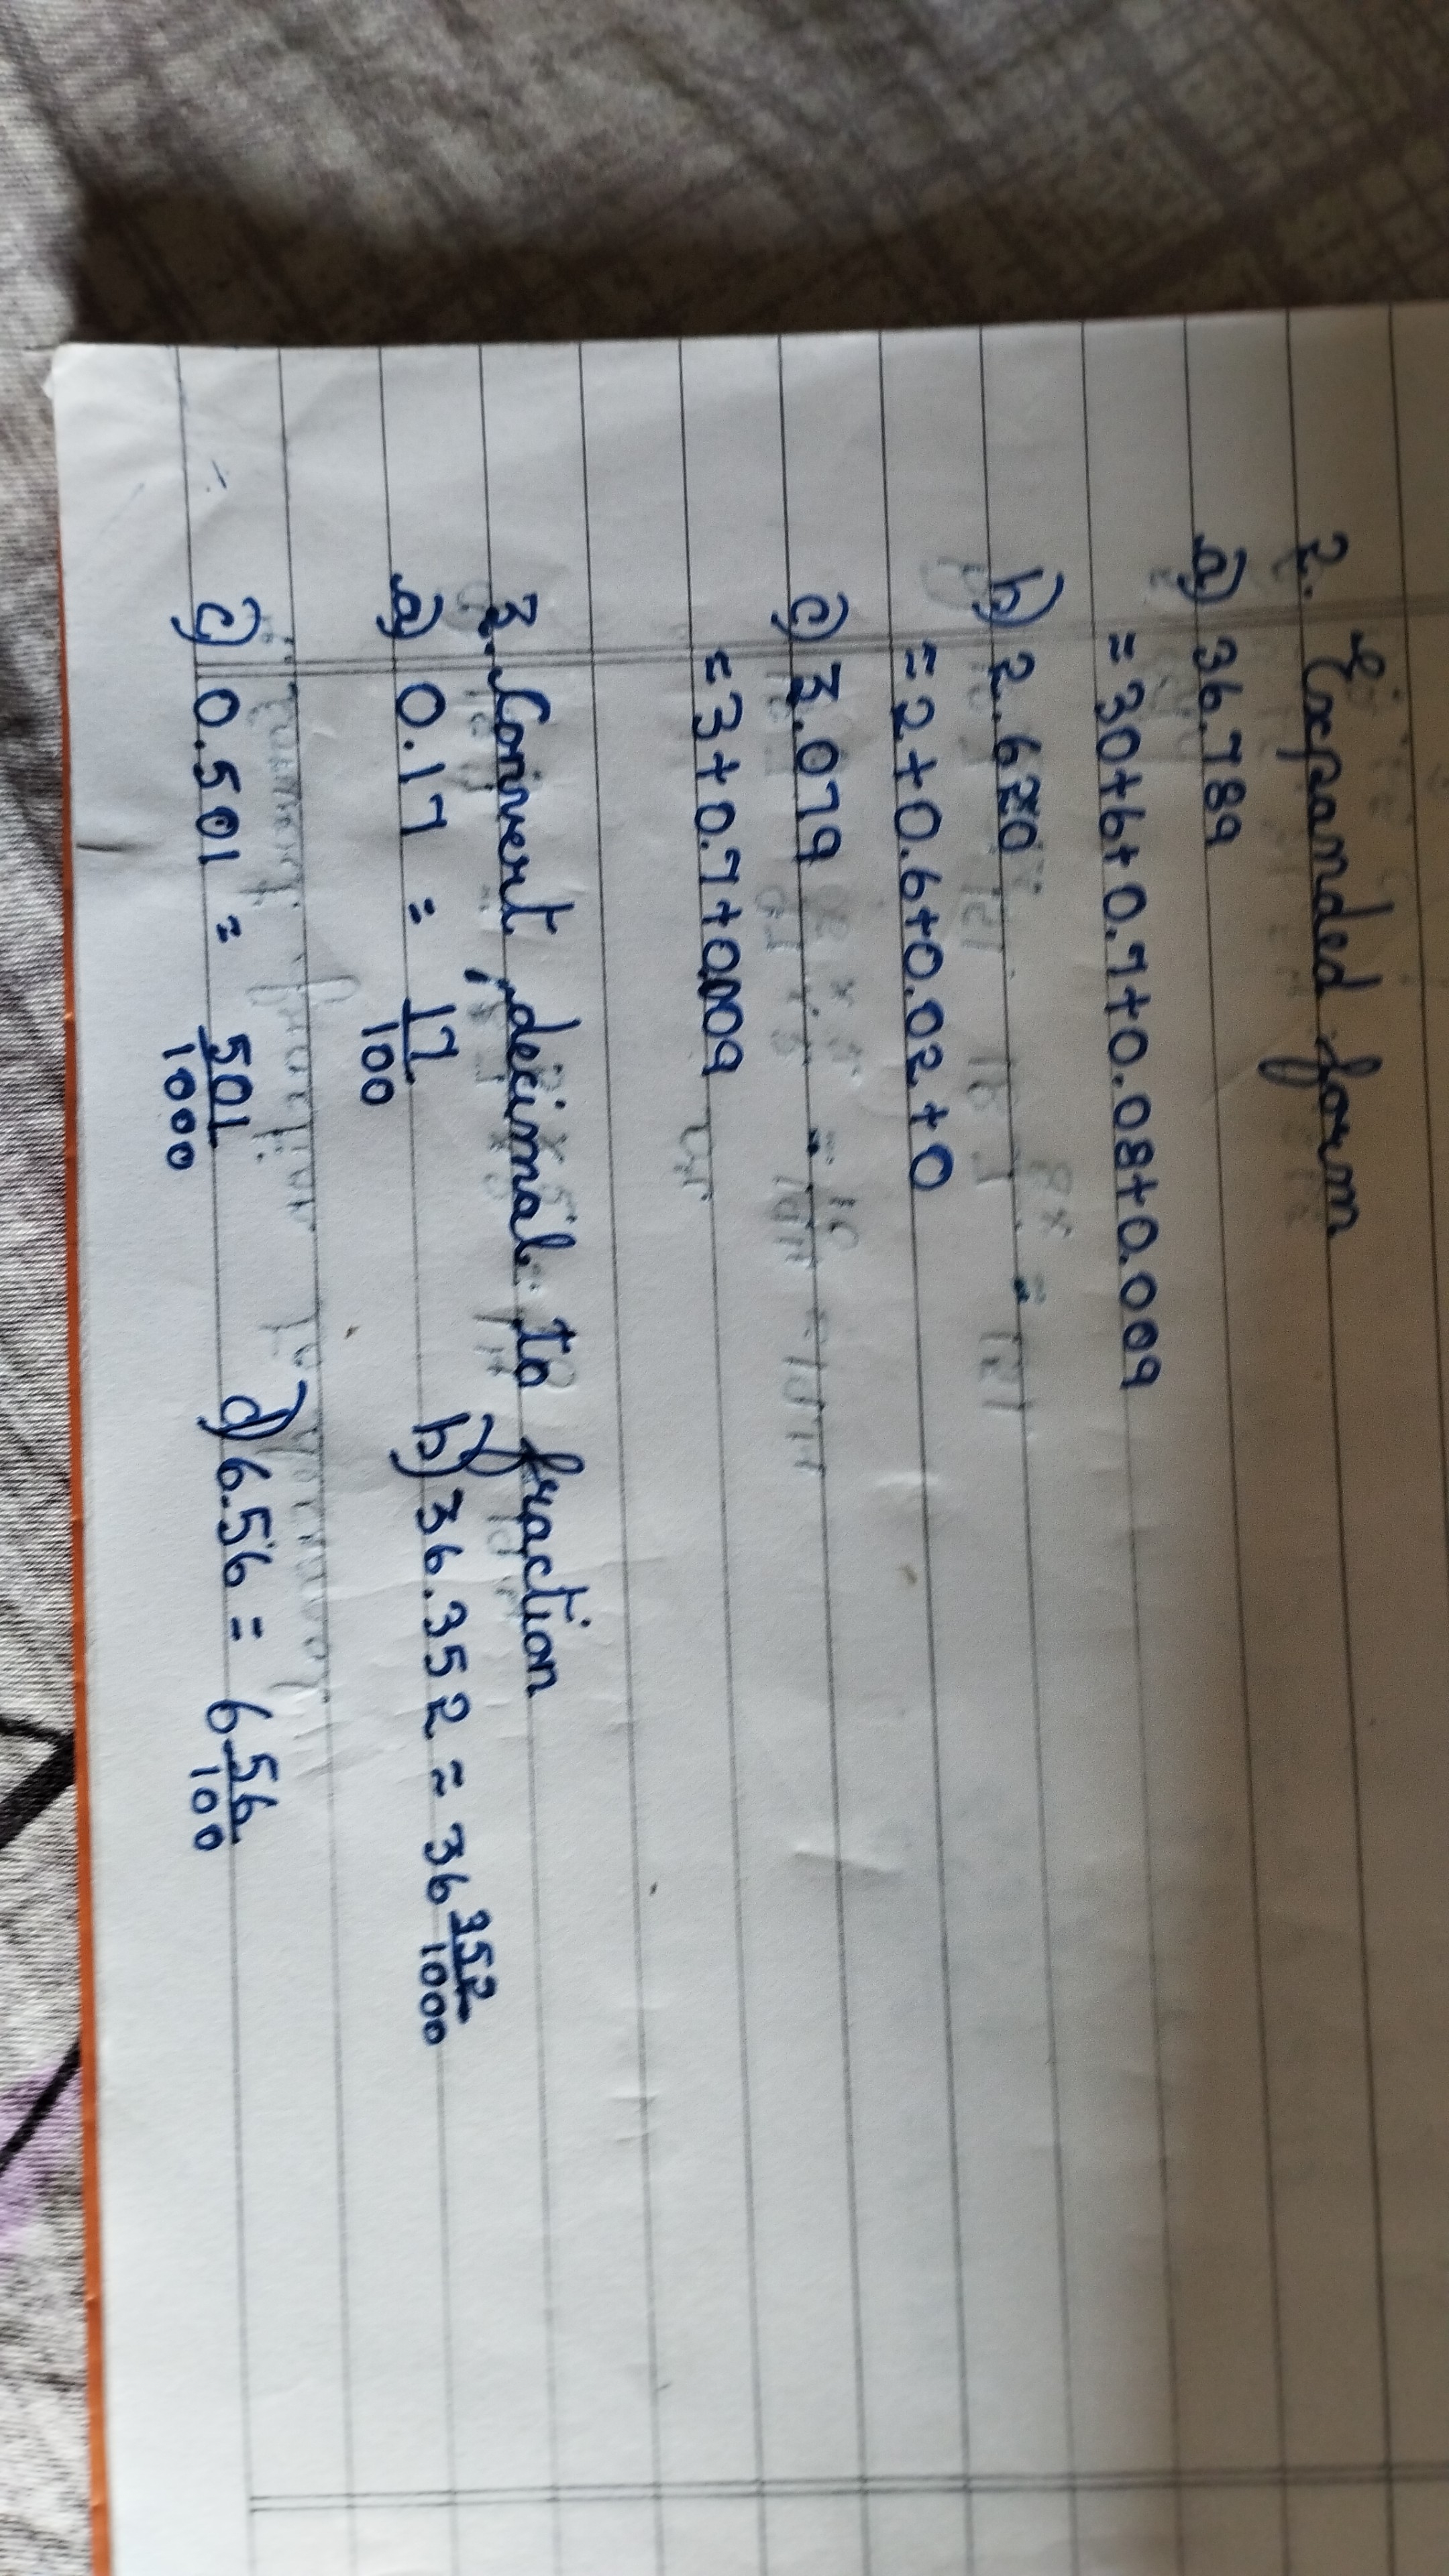 2. Expanded form
a) 36.789
= 30+6+0.7+0.08+0.009
b) 2.620
= 2+0.6+0.02+0
c) 3.079
= 3+0.7+0.009
3. Convert decimal to fraction
a) 0.17 = 17/100 b) 36.352 = 36 352/1000
c) 0.501 = 501/1000 d) 6.56 = 6 56/100